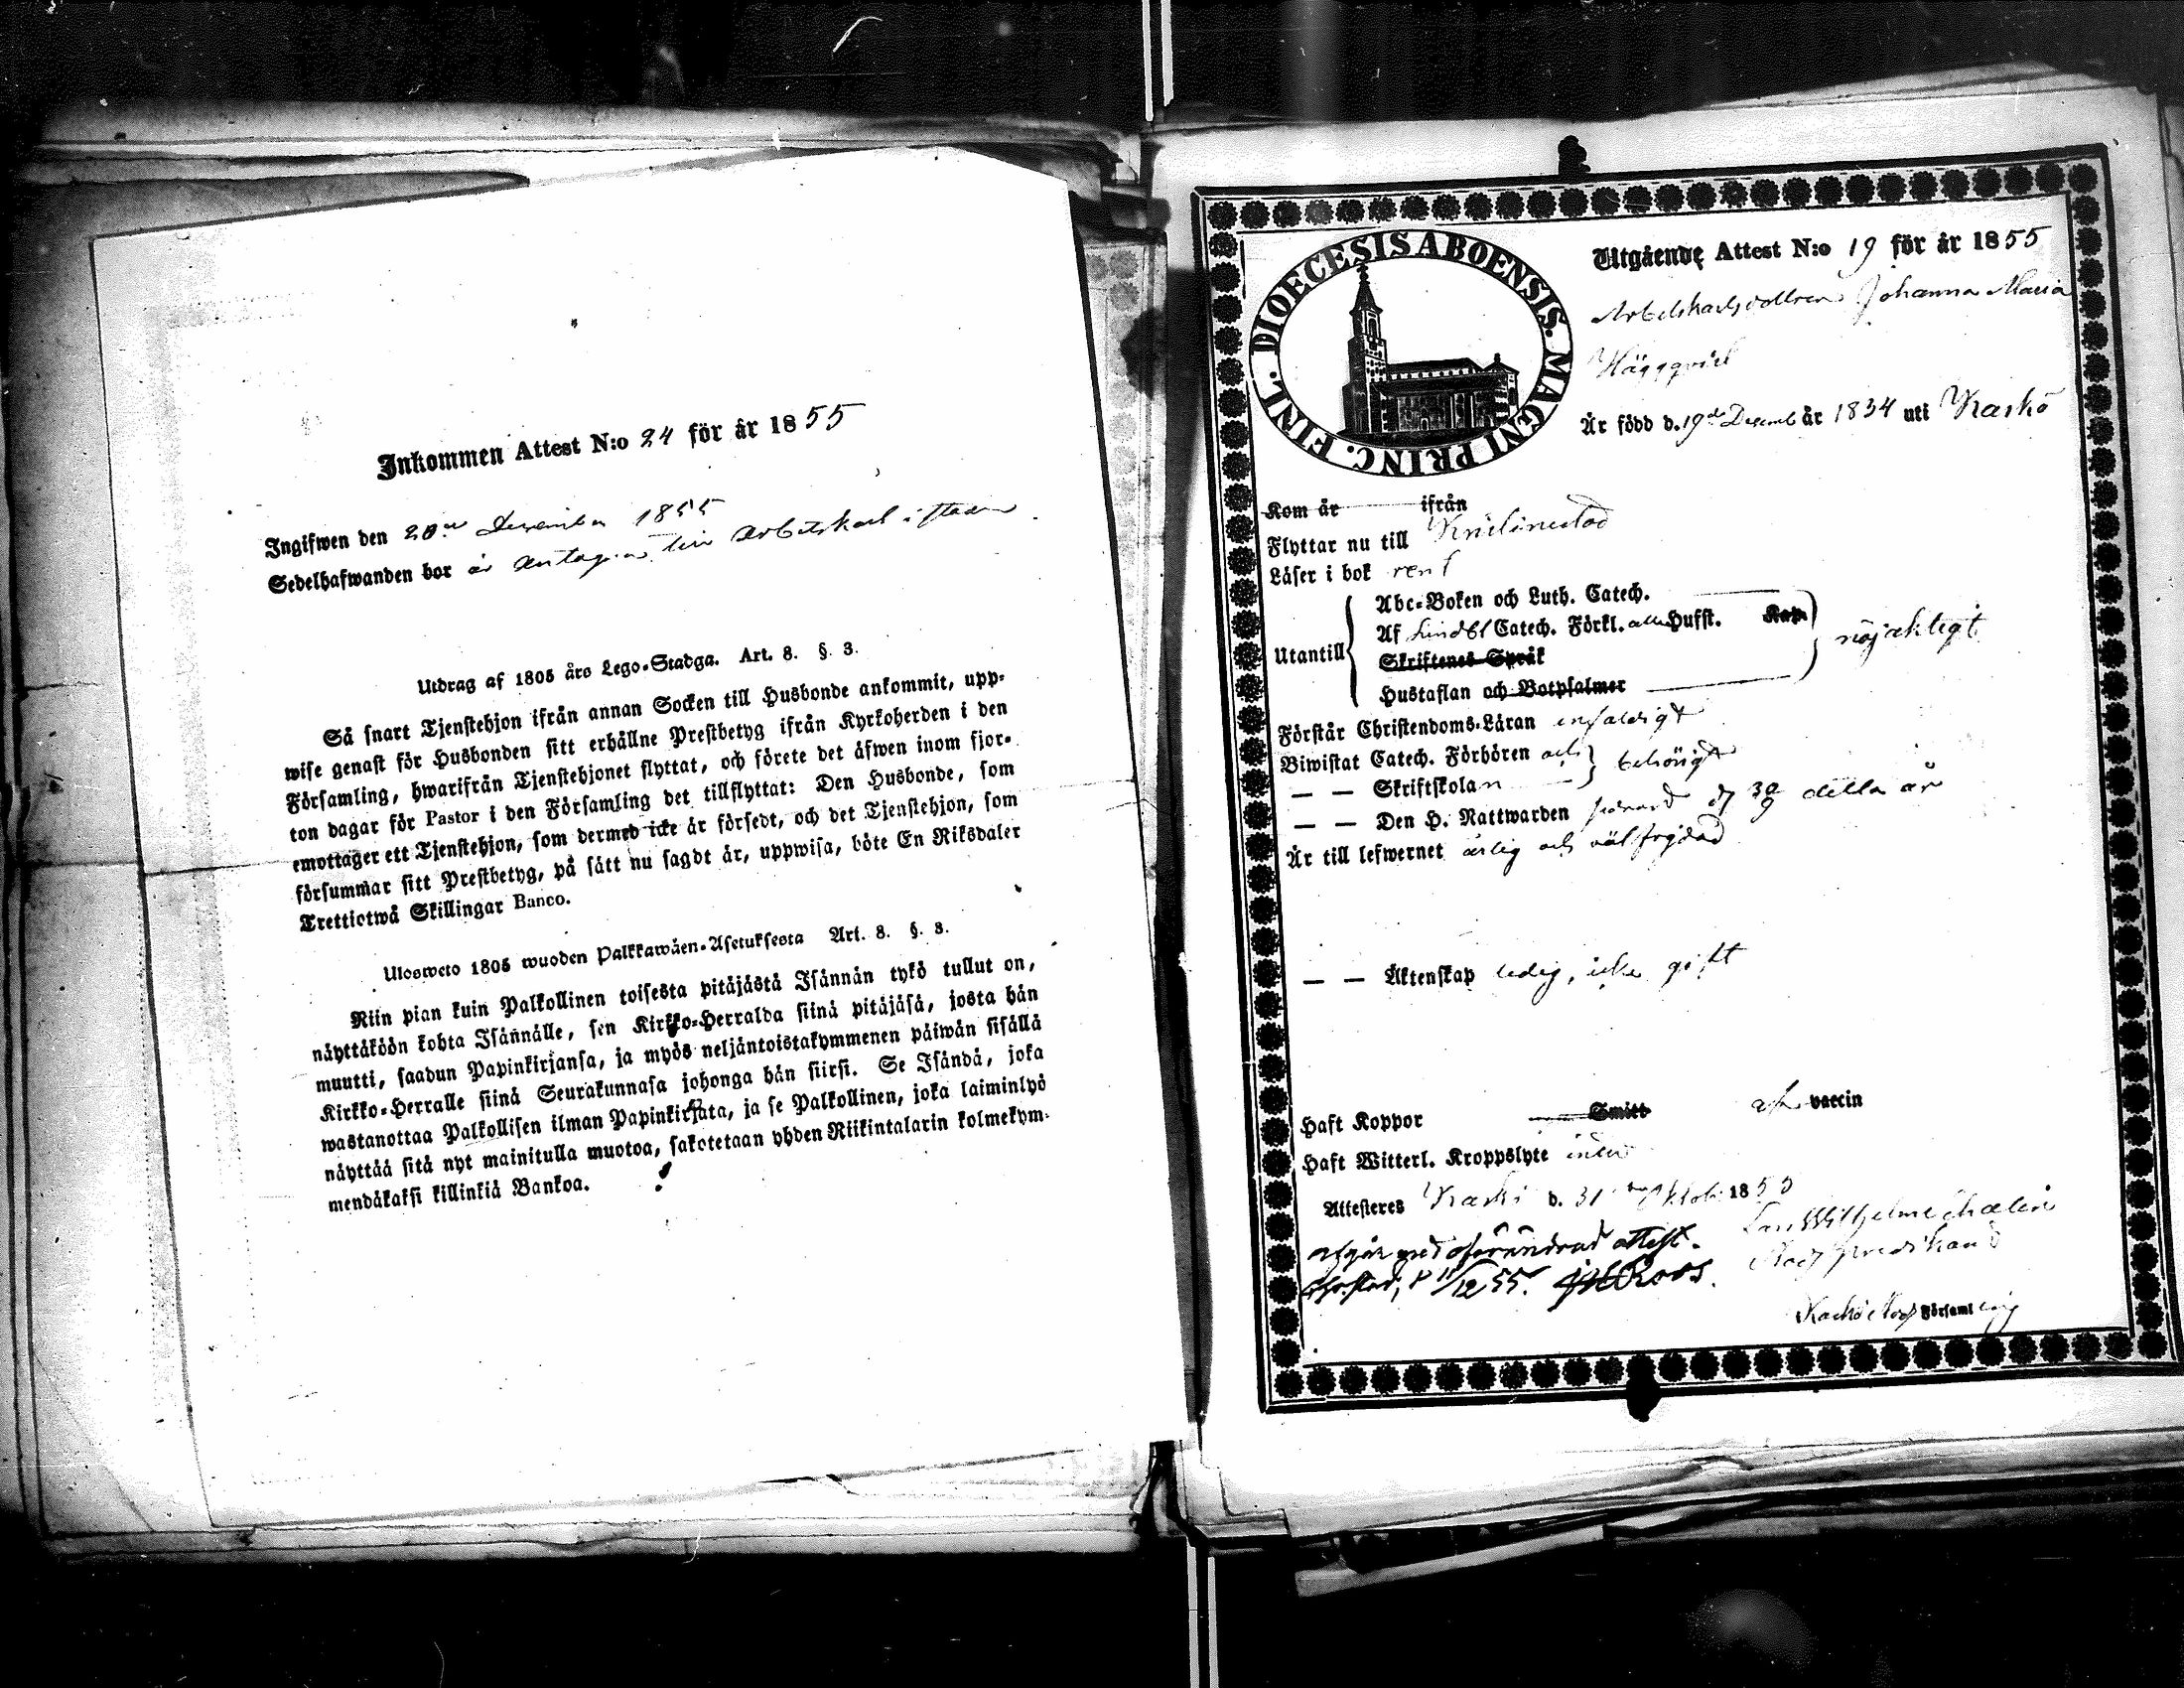 Inkommen Attest N:o 24 för år 1855
Ingifwen den 20 December 1855
Sedelhafwanden bor är antagen till Arbetskarl i staden
Utdrag af 1805 års Lego-Stadga. Art. 8. §. 3.
Så snart Tjenstehjon ifrån annan Socken till Husbonde ankommit, upp-
wise genast för Husbonden sitt erhållne Prestbetyg ifrån Kyrkoherden i den
Församling, hwarifrån Tjenstehjonet flyttat, och förete det äfwen inom fjor-
ton dagar för Pastor i den Församling det tillflyttat: Den Husbonde, som
emottager ett Tjenstehjon, som dermed icke är försedt, och det Tjenstehjon, som
försummar sitt Prestbetyg, på sätt nu sagdt är, uppwisa, böte En Riksdaler
Trettiotwå Skillingar Banco.
Ulosweto 1805 wuoden Palkkawäen-Asetuksesta Art. 8. §. 3.
Niin pian kuin Palkollinen toisesta pitäjästä Isännän tykö tullut on,
näyttäköön kohta Isännälle, sen Kirkko-Herralda siinä pitäjäsä, josta hän
muutti, saadun Papinkirjansa, ja myös neljäntoistakymmenen päiwän sisällä
Kirkko-Herralle siinä Seurakunnasa johonga hän siirsi. Se Isändä, joka
wastanottaa Palkollisen ilman Papinkirjata, ja se Palkollinen, joka laiminlyö
näyttää sitä nyt mainitulla muotoa, sakotetaan yhden Riikintalarin kolmekym-
mendäkaksi killinkiä Bankoa.
DIOECESIS ABOENSIS. MAGNI PRINC. FINL.
Utgående Attest N:o 19 för år 1855
Arbetskarlsdottren Johanna Maria
Häggqvist
Är född d. 19de Decemb år 1834 uti Kaskö
Kom år ifrån
Flyttar nu till Kristinestad
Läser i bok rent
Abc-Boken och Luth. Catech.
Utantill Af Lindbl Catech. Förkl. alla Hufst. Kap. nöjaktigt
Skriftenes Språk
Hustaflan och Botpsalmer
Förstår Christendoms-Läran enfaldigt
Biwistat Catech. Förhören och behörigt
— — Skriftskolan
— — Den H. Nattwarden d 30/9 detta år
Är till lefwernet ärlig och välfrejdad
— — Äktenskap ledig, icke gift
Haft Koppor Smitt af vaccin
Haft Witterl. Kroppslyte
Attesteres Kaskö d. 31 Oktob 1855
Lars Wilhelm
afgår med oförändrad attest.
11/12 55. Roos.
Kaskö Församling